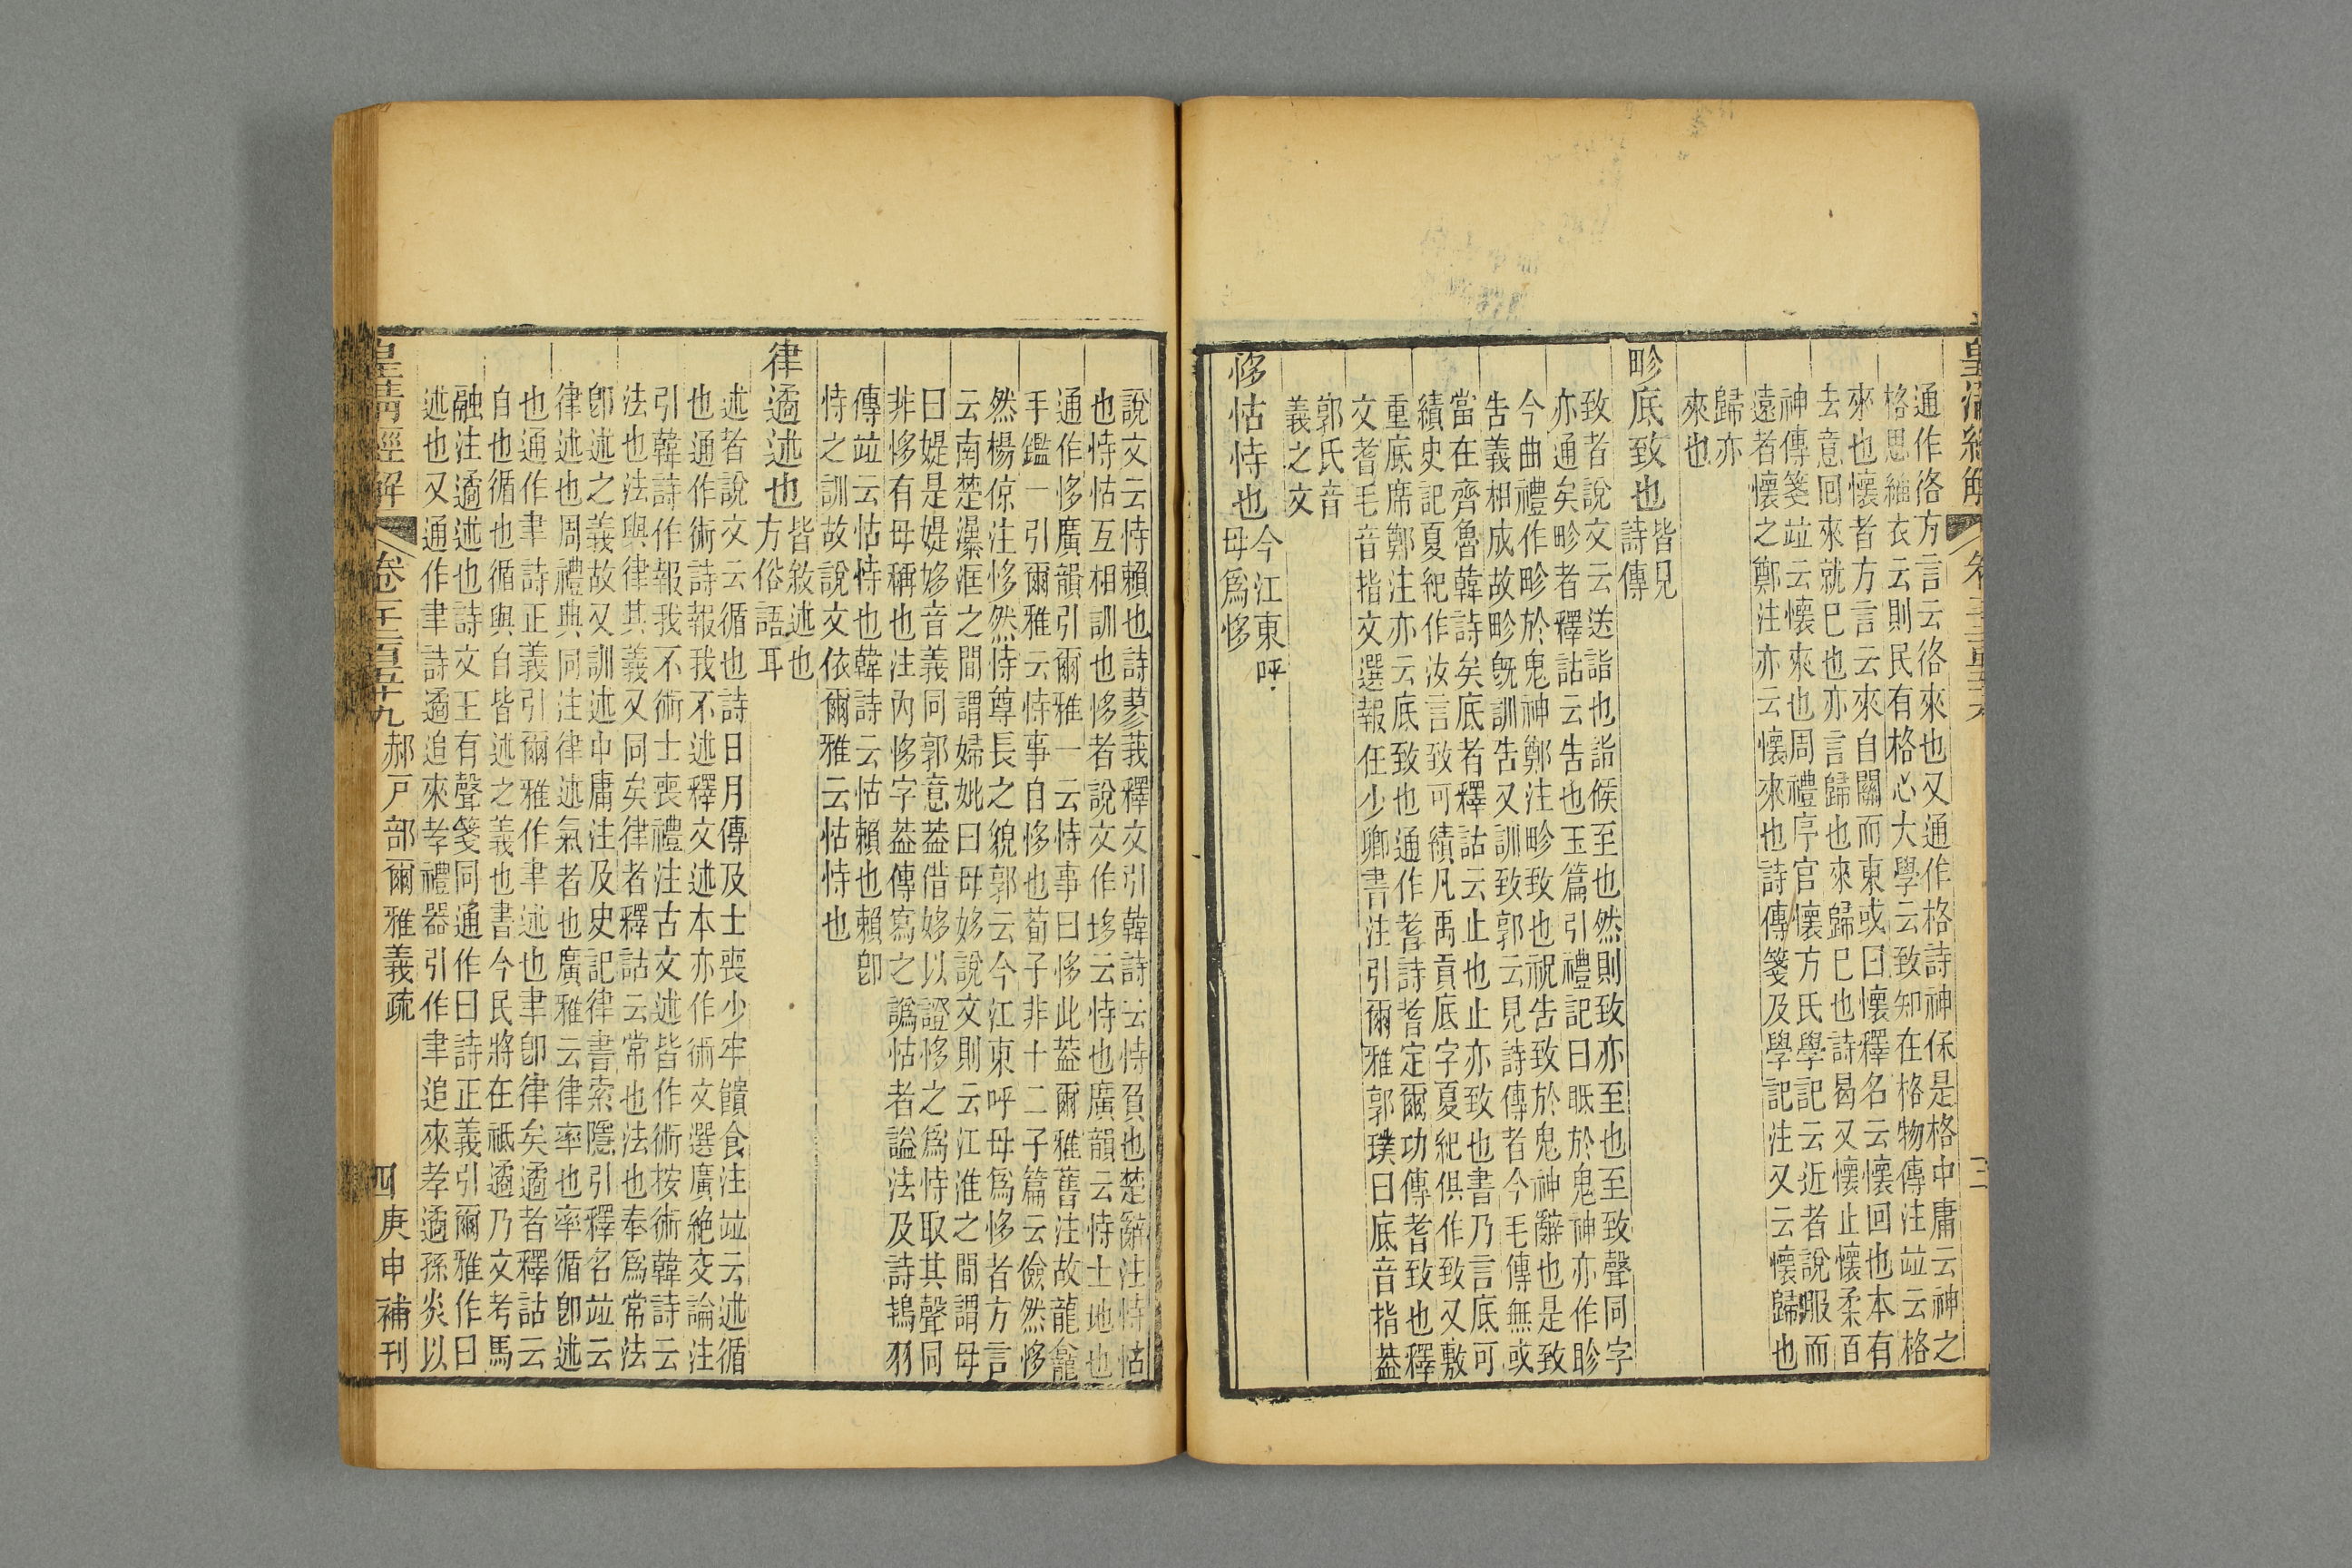 通作佫方言云佫來也又通作格詩神保是格中庸云神之
格思緇衣云則民有格心大學云致知在格物傳注竝云格
來也懷者方言云來自關而東或曰懷釋名云懷回也本有
去意回來就巳也亦言歸也來歸巳也詩曷又懷止懷柔百
神傳箋竝云懷來也周禮序官懷方氏學記云近者說服而
遠者懷之鄭注亦云懷來也詩傳箋及學記注又云懷歸也
歸亦
來也
畛底致也皆見
詩傳
致者說文云送詣也詣候至也然則致亦至也至致聲同字
亦通矣畛者釋詁云告也玉篇引禮記曰眂於鬼神亦作眕
今曲禮作畛於鬼神鄭注畛致也祝告致於鬼神辭也是致
告義相成故畛旣訓告又訓致郭云見詩傳者今毛傳無或
當在齊魯韓詩矣底者釋詁云止也止亦致也書乃言底可
績史記夏紀作汝言致可績凡禹貢底字夏紀俱作致又敷
重底席鄭注亦云底致也通作耆詩耆定爾功傳耆致也釋
文耆毛音指文選報任少卿書注引爾雅郭璞曰底音指葢
郭氏音
義之文
恀怙恃也今江東呼
母爲恀
說文云恃賴也詩蓼莪釋文引韓詩云恃負也楚辭注恃怙
也恃怙互相訓也恀者說文作垑云恃也廣韻云恃土地也
通作恀廣韻引爾雅一云恃事曰恀此葢爾雅舊注故龍龕
手鑑一引爾雅云恃事自恀也荀子非十二子篇云儉然恀
然楊倞注恀然恃尊長之貌郭云今江東呼母爲恀者方言
云南楚瀑洭之間謂婦妣曰母姼說文則云江淮之間謂母
曰媞是媞姼音義同郭意葢借姼以證恀之爲恃取其聲同
非恀有母稱也注內恀字葢傳寫之譌怙者謚法及詩鴇羽
傳竝云怙恃也韓詩云怙賴也賴卽
恃之訓故說文依爾雅云怙恃也
律遹述也皆敘述也
方俗語耳
述者說文云循也詩日月傳及士喪少牢饋食注竝云述循
也通作術詩報我不述釋文述本亦作術文選廣絶交論注
引韓詩作報我不術士喪禮注古文述皆作術按術韓詩云
法也法與律其義又同矣律者釋詁云常也法也奉爲常法
卽述之義故又訓述中庸注及史記律書索隱引釋名竝云
律述也周禮典同注律述氣者也廣雅云律率也率循卽述
也通作聿詩正義引爾雅作聿述也聿卽律矣遹者釋詁云
自也循也循與自皆述之義也書今民將在祗遹乃文考馬
融注遹述也詩文王有聲箋同通作曰詩正義引爾雅作曰
述也又通作聿詩遹追來孝禮器引作聿追來孝遹孫炎以
皇淸經解 卷一千二百五十九 郝戸部爾雅義疏 四 庚申補刊